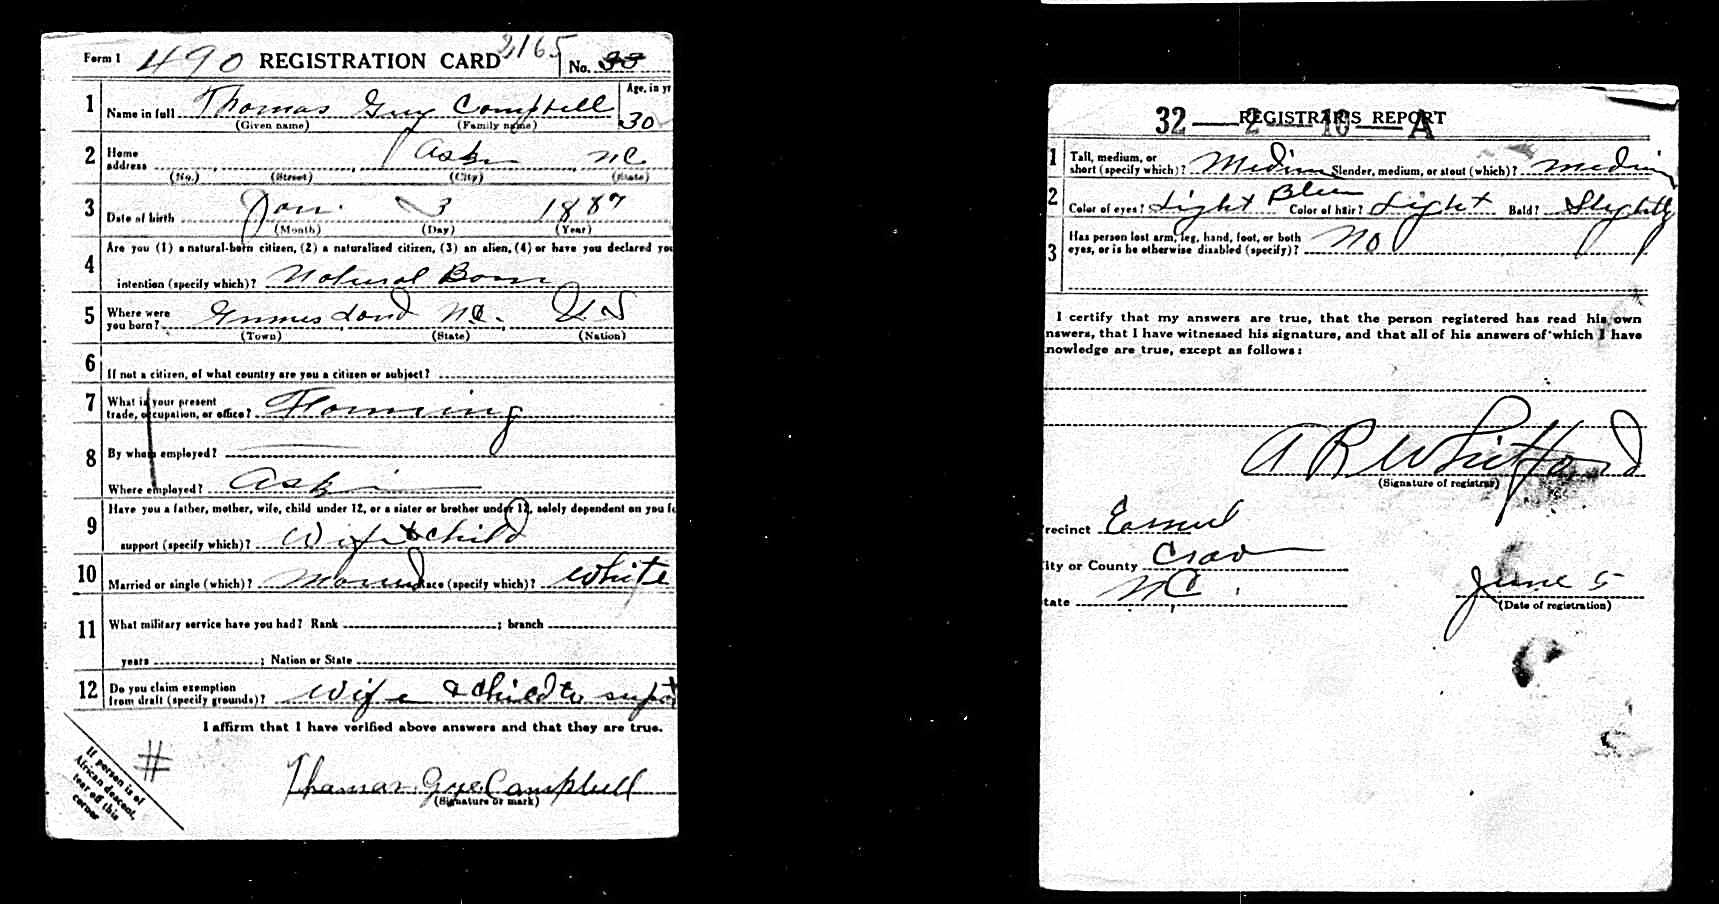 Form 1 490 REGISTRATION CARD 2165 No. 33
1 Name in full Thomas Guy Campbell Age, in yr 30
(Given name) (Family name)
2 Home address Askin NC
(No.) (Street) (City) (State)
3 Date of birth Jan. 3 1887
(Month) (Day) (Year)
4 Are you (1) a natural-born citizen, (2) a naturalized citizen, (3) an alien, (4) or have you declared you
intention (specify which)? Natural Born
5 Where were you born? N.C. US
(Town) (State) (Nation)
6 If not a citizen, of what country are you a citizen or subject?
7 What is your present trade, occupation, or office? Farming
8 By whom employed?
Where employed? Askin
9 Have you a father, mother, wife, child under 12, or a sister or brother under 12, solely dependent on you f
support (specify which)? Wife & child
10 Married or single (which)? Married Race (specify which)? White
11 What military service have you had? Rank ; branch
years ; Nation or State
12 Do you claim exemption from draft (specify grounds)? Wife & child to supt
I affirm that I have verified above answers and that they are true.
#
Thomas Guy Campbell
(Signature or mark)
If person is of
African descent,
tear off this
corner
32—2—10—A
REGISTRAR'S REPORT
1 Tall, medium, or short (specify which)? Medium Slender, medium, or stout (which)? medium
2 Color of eyes? Light Blue Color of hair? Light Bald? Slightly
3 Has person lost arm, leg, hand, foot, or both eyes, or is he otherwise disabled (specify)? No
I certify that my answers are true, that the person registered has read his own
nswers, that I have witnessed his signature, and that all of his answers of which I have
nowledge are true, except as follows:
A R Whitford
(Signature of registrar)
recinct Ernul
ity or County Crav
tate NC June 5
(Date of registration)